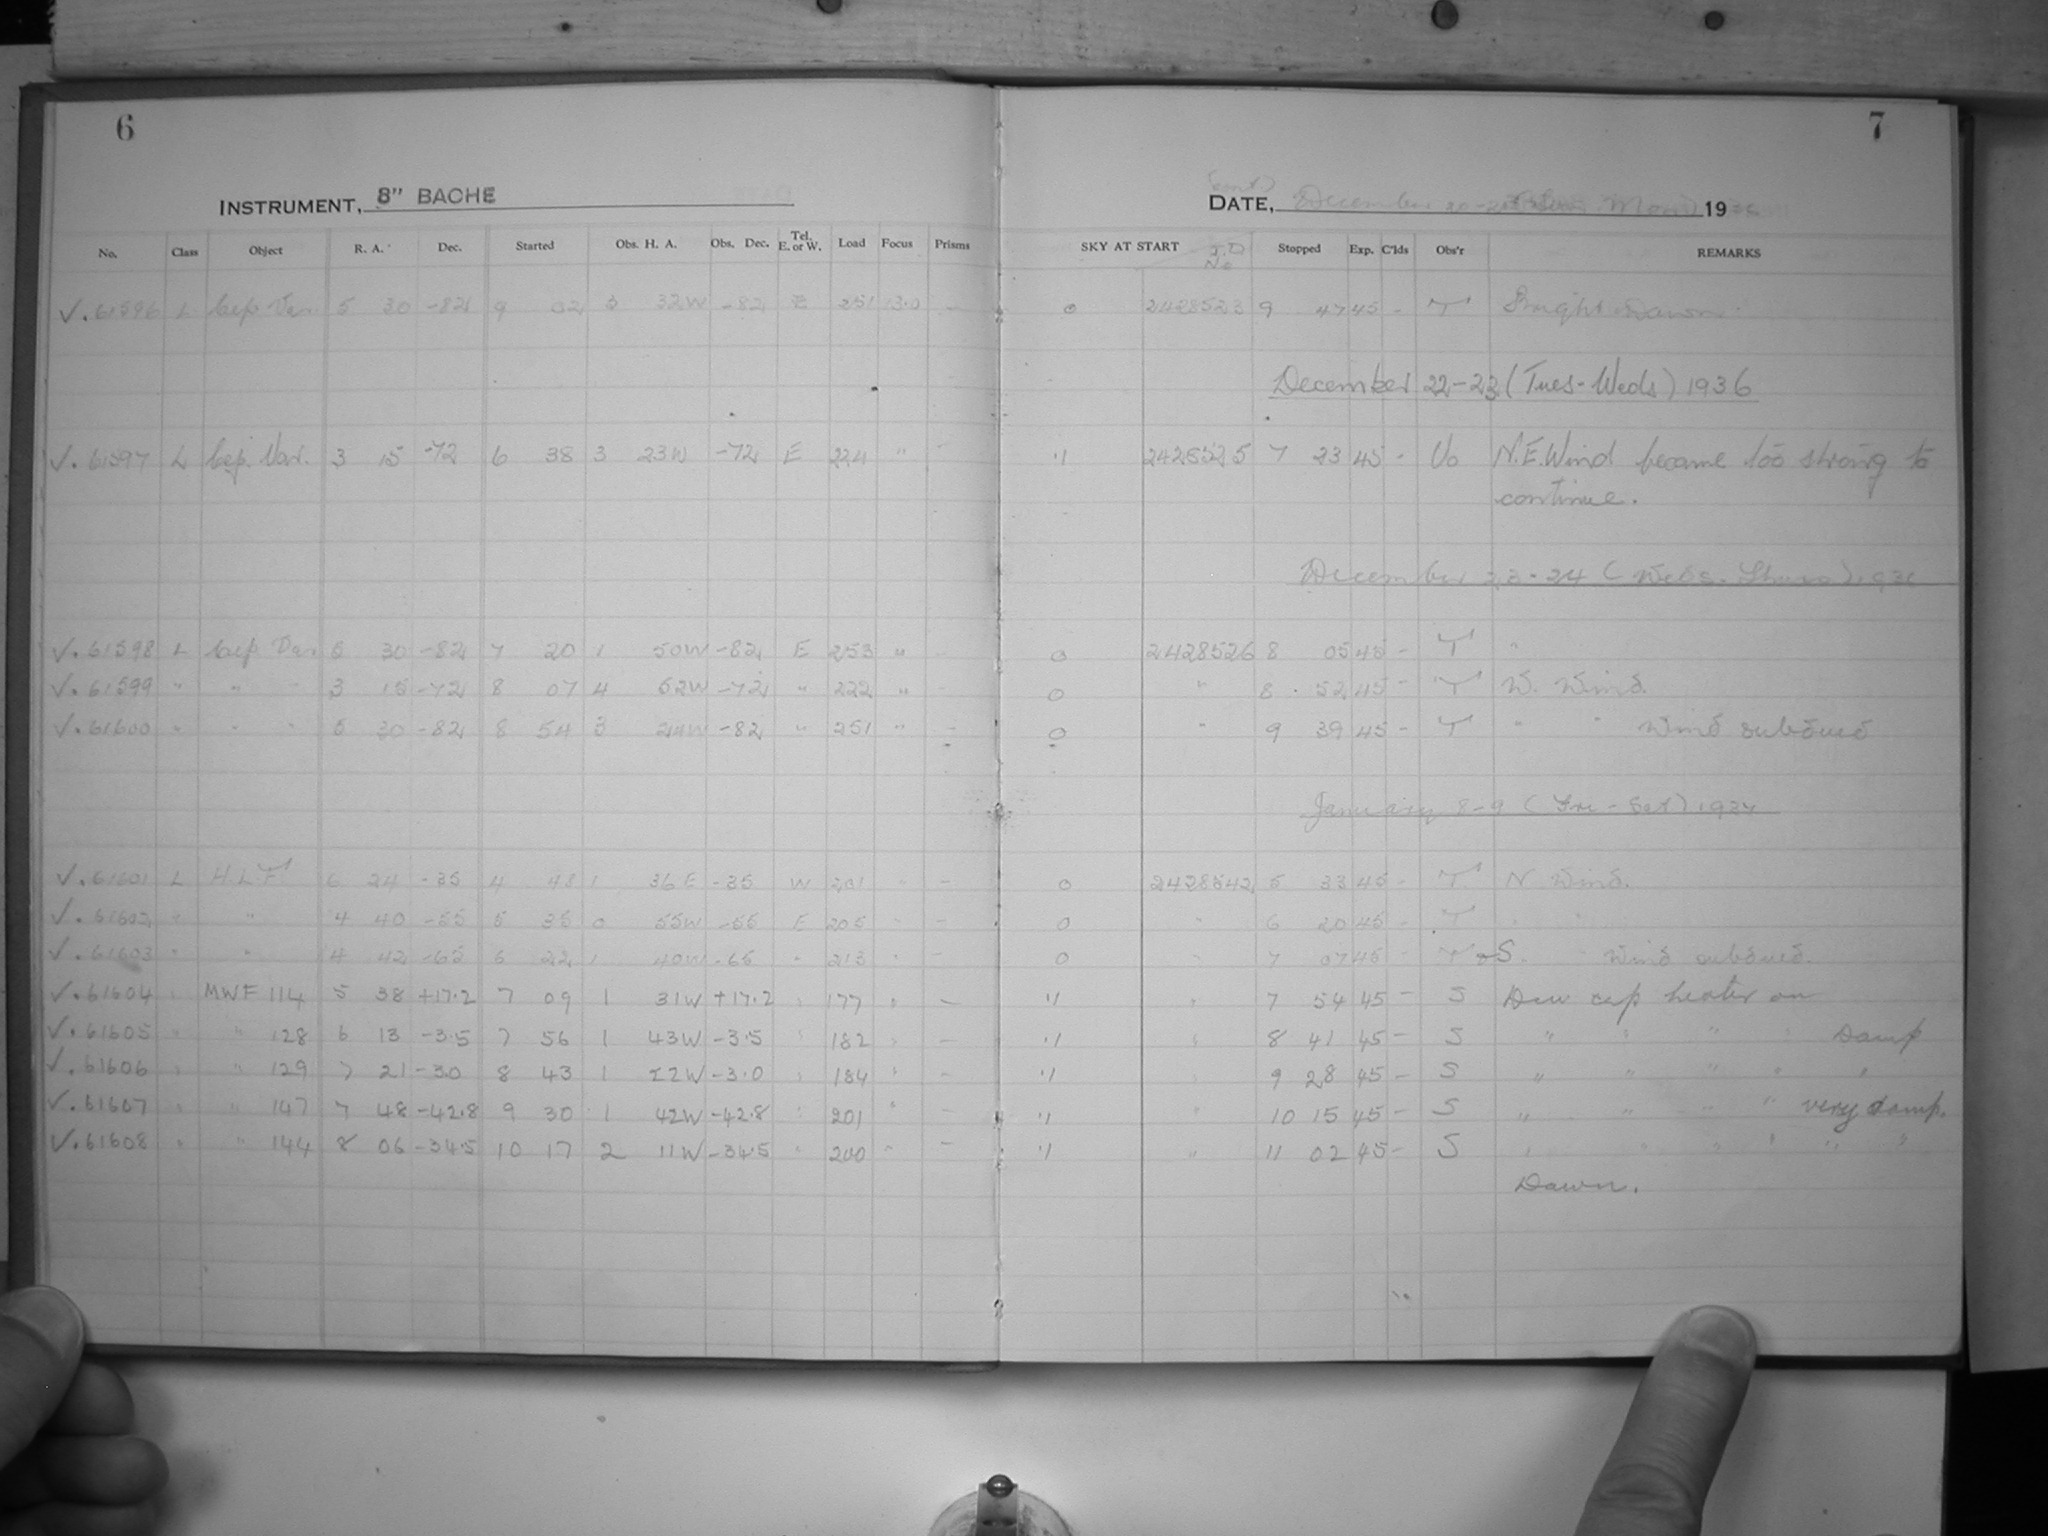 6
INSTRUMENT, 8" BACHE
No. Class Object R. A. Dec. Started Obs. H. A. Obs. Dec. Tel. E. or W. Load Focus Prisms
V. 61596 L Cep Var 5 30 -82 9 02 3 32W -82 E 251 13.0 —
V. 61597 L Cep. Var. 3 15 -72 6 38 3 23W -72 E 224 " -
V. 61598 L Cep Var 5 30 -82 7 20 1 50W -82 E 253 " -
V. 61599 " " " 3 15 -72 8 07 4 52W -72 " 222 " -
V. 61600 " " " 5 30 -82 8 54 3 24W -82 " 251 " —
V. 61601 L H.L.T 6 24 -35 4 48 1 36E -35 W 201 " —
V. 61602 " " 4 40 -55 5 35 0 55W -55 E 205 " —
V. 61603 " " 4 42 -65 6 22 1 40W -65 " 213 " —
V. 61604 " MWF 114 5 38 +17.2 7 09 1 31W +17.2 " 177 " —
V. 61605 " " 128 6 13 -3.5 7 56 1 43W -3.5 " 182 " —
V. 61606 " " 129 7 21 -3.0 8 43 1 22W -3.0 " 184 " —
V. 61607 " " 147 7 48 -42.8 9 30 1 42W -42.8 " 201 " —
V. 61608 " " 144 8 06 -34.5 10 17 2 11W -34.5 " 200 " —
7
(cont.)
DATE, December 20-21 1936
SKY AT START J.D No Stopped Exp. C'lds Obs'r REMARKS
0 2428523 9 47 45 - T Bright Dawn.
December 22-23 (Tues-Weds) 1936
.1 2428525 7 23 45 - Uo N.E. Wind became too strong to
continue.
December 23-24 (Weds-Thurs) 1936
0 2428526 8 05 45 - T "
0 " 8 52 45 - T W. Wind.
0 " 9 39 45 - T " " Wind subdued
January 8-9 (Fri-Sat) 1937
0 2428542 5 33 45 - T N Wind.
0 " 6 20 45 - T " "
0 " 7 07 45 - T & S. " Wind subdued.
.1 " 7 54 45 — S Dew cap heater on
.1 " 8 41 45 — S " " " " Damp
.1 " 9 28 45 — S " " " " "
.1 " 10 15 45 — S " " " " very damp.
.1 " 11 02 45 — S " " " " " "
Dawn.